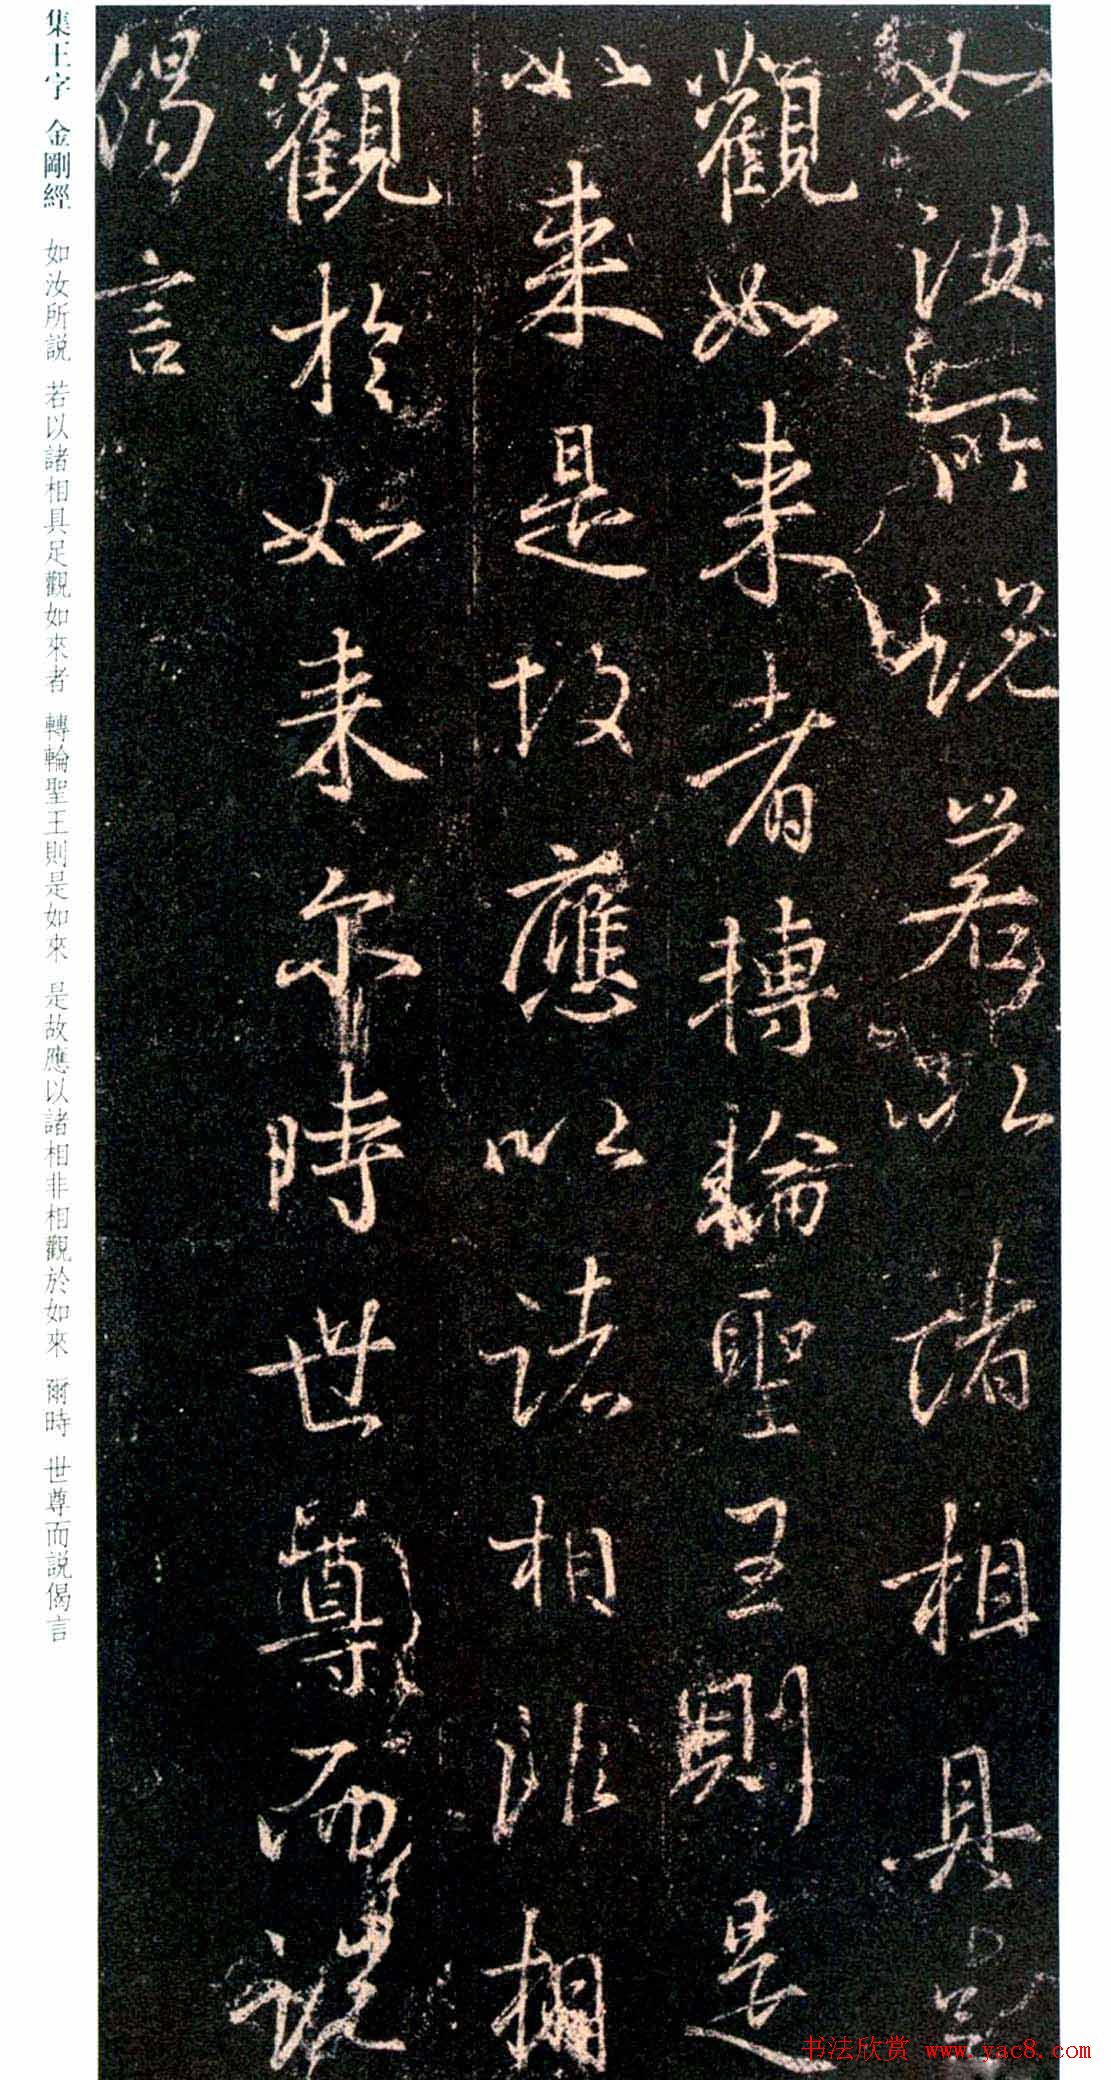 如汝所説若以諸相具足
觀如来者轉輪聖王則是
如来是故應以諸相非相
觀於如来尔時世尊而説
偈言
集王字 金剛經 如汝所説 若以諸相具足觀如來者 轉輪聖王則是如來 是故應以諸相非相觀於如來 爾時 世尊而説偈言
书法欣赏 www.yac8.com